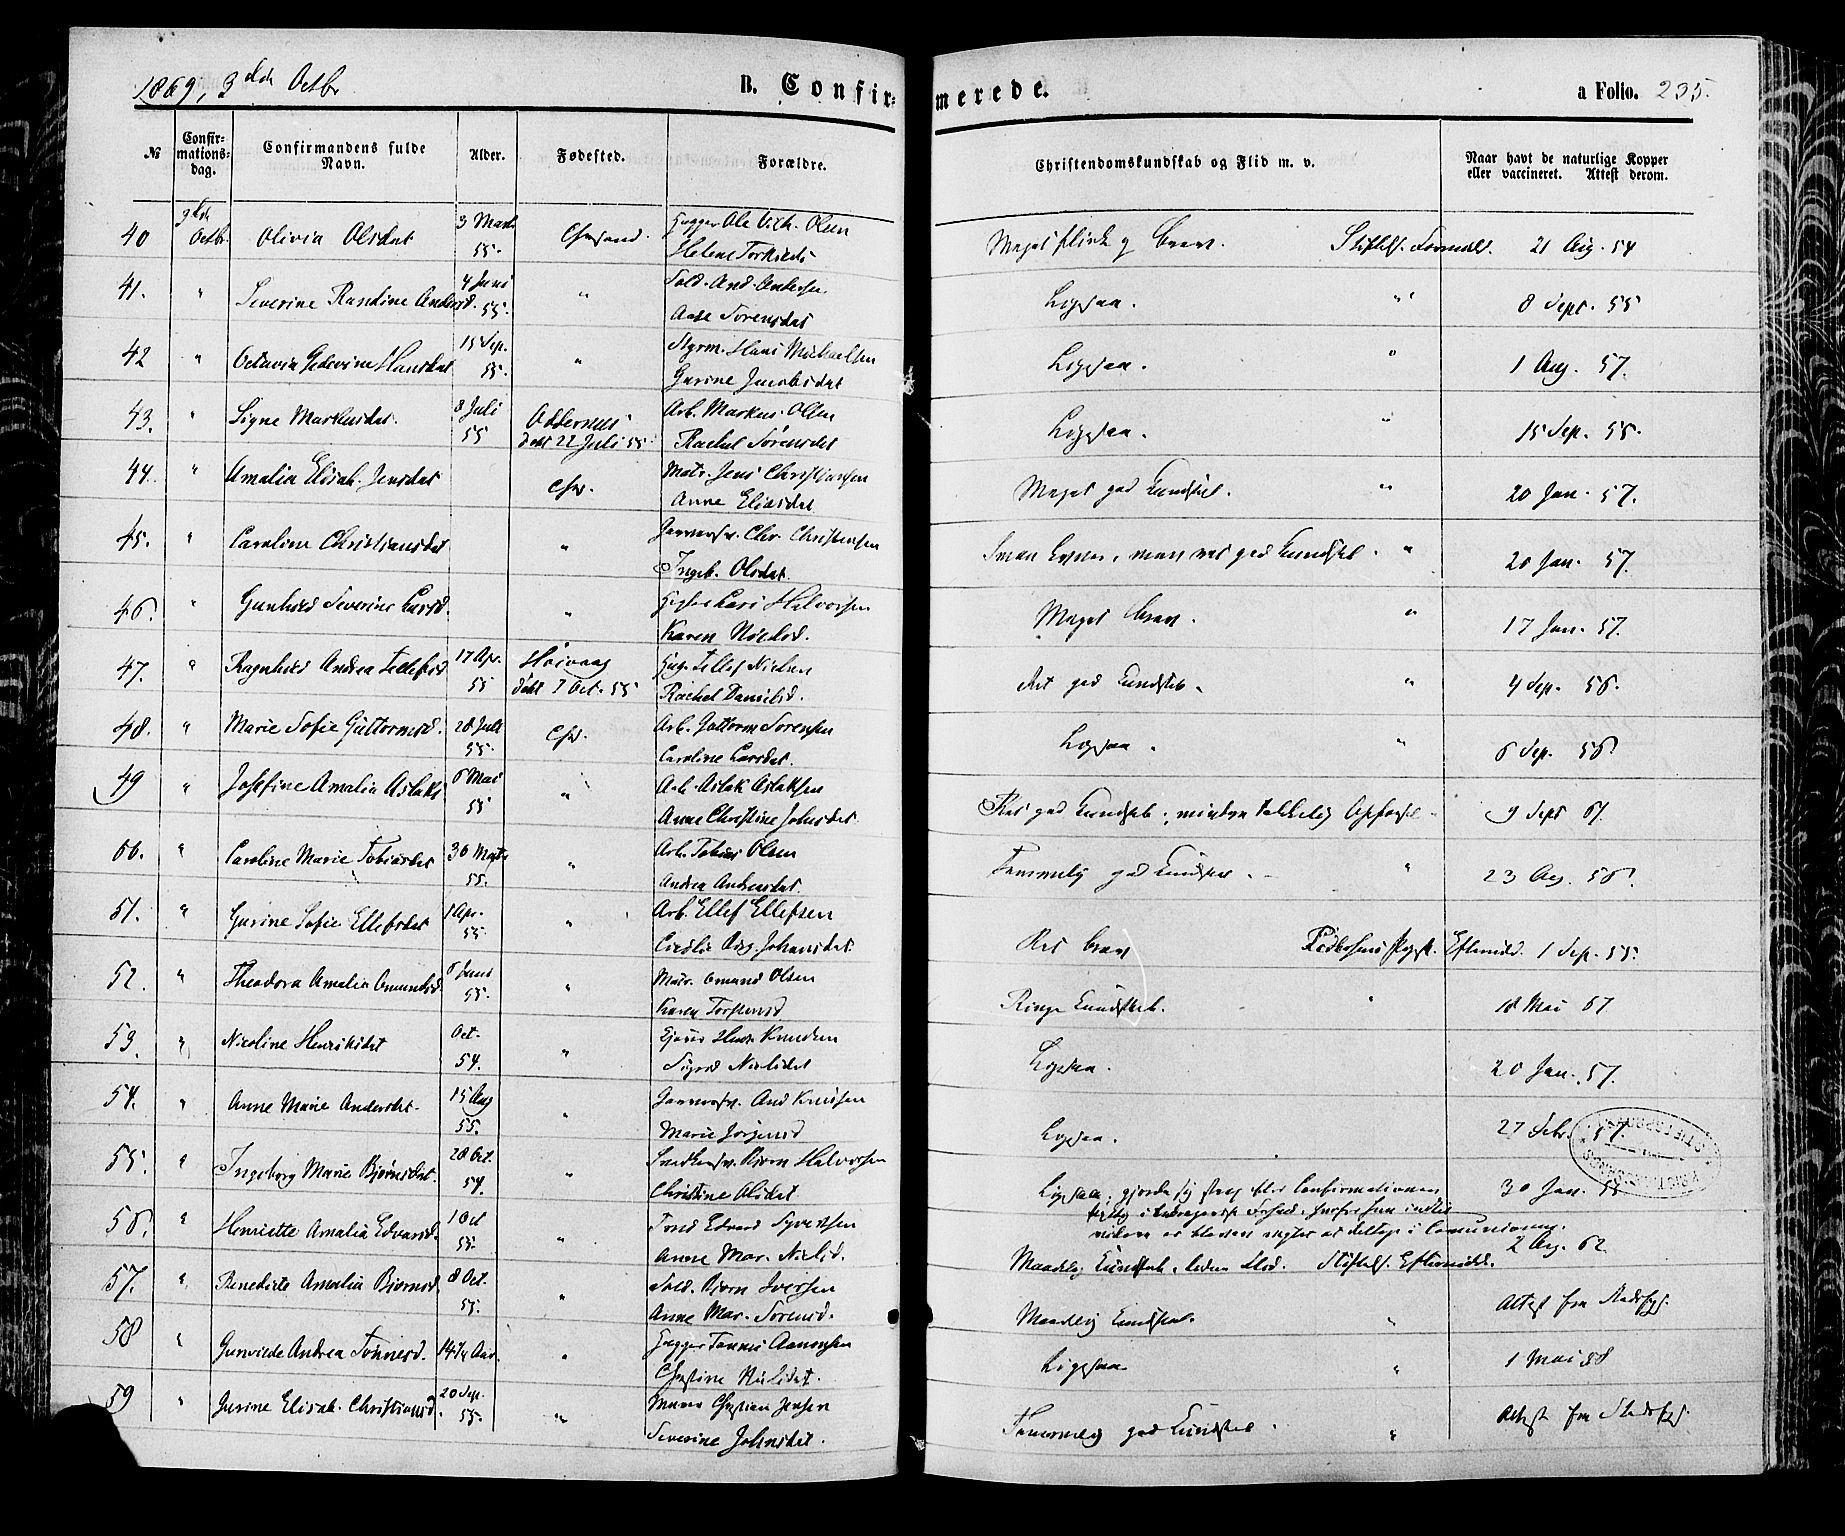 1869, 3die Octbr
B. Confirmerede.
a Folio. 235.
№ Confirmationsdag. Confirmandens fulde Navn. Alder. Fødested. Forældre. Christendomskundskab og Flid m. v. Naar havt de naturlige Kopper eller vaccineret. Attest derom.
40 Octbr. Olivia Olsdat 3 Marts 55. Chrsand. Ole Olsen
Meget flink og brav. 21 Aug. 54
41. " Severine Randine Andersd. 4 Juni 55. " And. Andersen
Aase Sørensdat
Ligesaa. " 8 Sept. 55
42 " Octavia Gedevine Hansdat 15 Sep. 55. " Styrm. Hans Michaelsen
Gurine Jacobsdat
Ligesaa. " 1 Aug. 57.
43. " Signe Markusdat. 8 Juli 55 Oddernes døbt 22 Juli 55 Arb. Markus Olsen
Rachel Sørensdat
Ligesaa. " 15 Sep. 55.
44. " Amalia Elisab. Jensdat Chr. Matr. Jens Christiansen
Anne Eliasdat
Meget god Kundskab. " 20 Jan. 57.
45. " Caroline Christiansdat " Chr. Christensen
Ingeb. Olsdat.
men ret god Kundskab. " 20 Jan. 57.
46. " Gunhild Severine Larsd. " Lars Halvorsen
Karen Nielsd.
Meget brav. " 17 Jan. 57.
47. " Ragnhild Andrea Tellefsd 17 Apr. 55 Høivaag døbt 7 Oct. 55 Tellef Nielsen
Rachel Danielsd.
Ret god Kundskab. " 4 Sep. 56.
48. " Marie Sofie Guttormsd. 28 Juli 55. Chr. Arb. Guttorm Sørensen
Caroline Larsdat.
Ligesaa. " 6 Sep. 56
49 " Josefine Amalia Aslaks 6 Mai 55 " Arb. Aslak Aslaksen
Anne Christine Johnsdat
Ret god Kundskab; mindre Opførsel. 9 Sept 61.
" Caroline Marie Tobiasdat 30 Marts 55. " Arb. Tobias Olsen
Andrea Andreasdat.
Temmelig god Kundskab. " 23 Aug. 56.
51. " Gurine Sofie Ellefsdat 1 Apr. 55 " Arb. Ellef Ellefsen
Johansdat
Ret brav 1 Sep. 55.
52. " Theodora Amalia Omundsd. 6 Juni 55. " Omund Olsen
Karen Torstensd
Ringe Kundskab. " 18 Mai 61
53. " Nicoline Henriksdat Oct. 54. " Henr. Knudsen
Sigrid Nielsdat
Ligesaa. 20 Jan. 57.
54. " Anne Marie Andersdat. 15 Aug 55. " And Knudsen
Marie Jørgensd
Ligesaa. 27 Febr. 57
55. " Ingeborg Marie Bjørnsdat. 28 Oct. 54. " Bjørn Halvorsen
Christine Olsdat
Ligesaa; gjorde sig strax efter Confirmationen
at deltage i Comunionen.
30 Jan. 55
56. " Henriette Amalia Edvardsd. 1 Oct 55. " Edvard Syvertsen
Anne Mar. Nielsd.
Maadelig Kundskab. 2 Aug. 62.
57. " Benedicte Amalia Bjørnsd. 8 Oct. 55. " Bjørn Iversen
Anne Mar. Sørensd.
Maadelig Kundskab. " Attest fra Stadsfys.
58 " Gunvilde Andrea Tønnesd. 14 3/4 Aar. " Tønnes Aanonsen
Christine Nielsdat.
Ligesaa. " 1 Mai 58
59 " Gurine Elisab. Christiansd. 20 Sep. 55. " Christian Jensen
Severine Johnsdat.
Temmelig god Kundskab. " Attest fra Stadsfys.